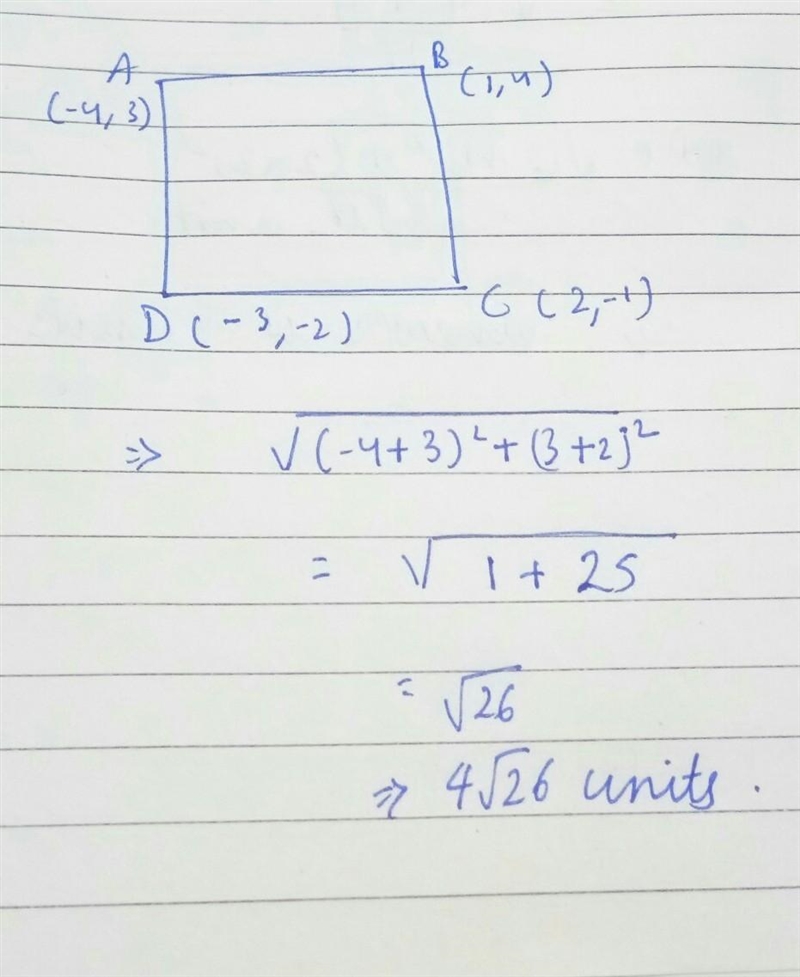 A B
(-4, 3) (1, 4)
D (-3, -2) C (2, -1)
⇒ √(-4+3)²+(3+2)²
= √1 + 25
= √26
⇒ 4√26 units.